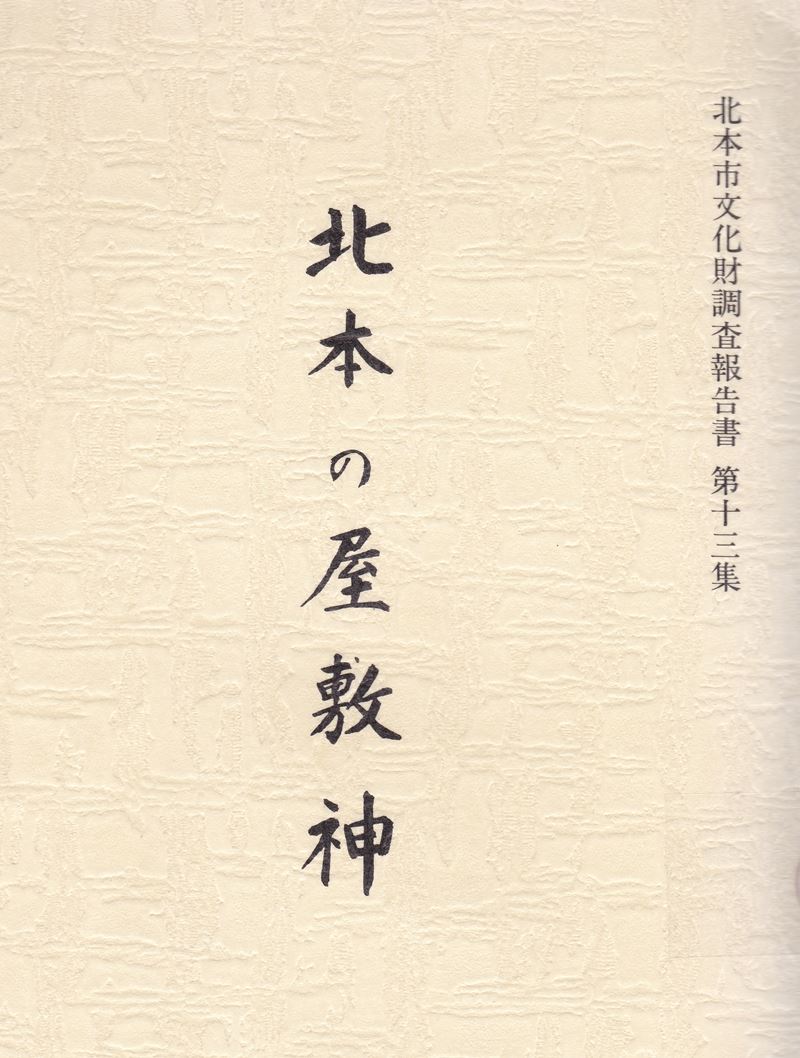 北本市文化財調査報告書 第十三集
北本の屋敷神